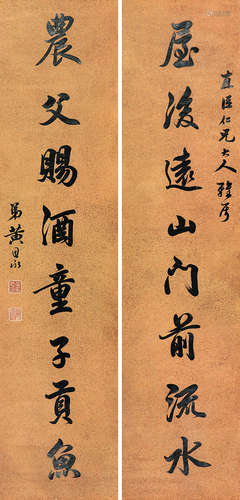 直臣仁兄大人雅屬
屋後遠山門前流水
農父賜酒童子貢魚
弟黃思永